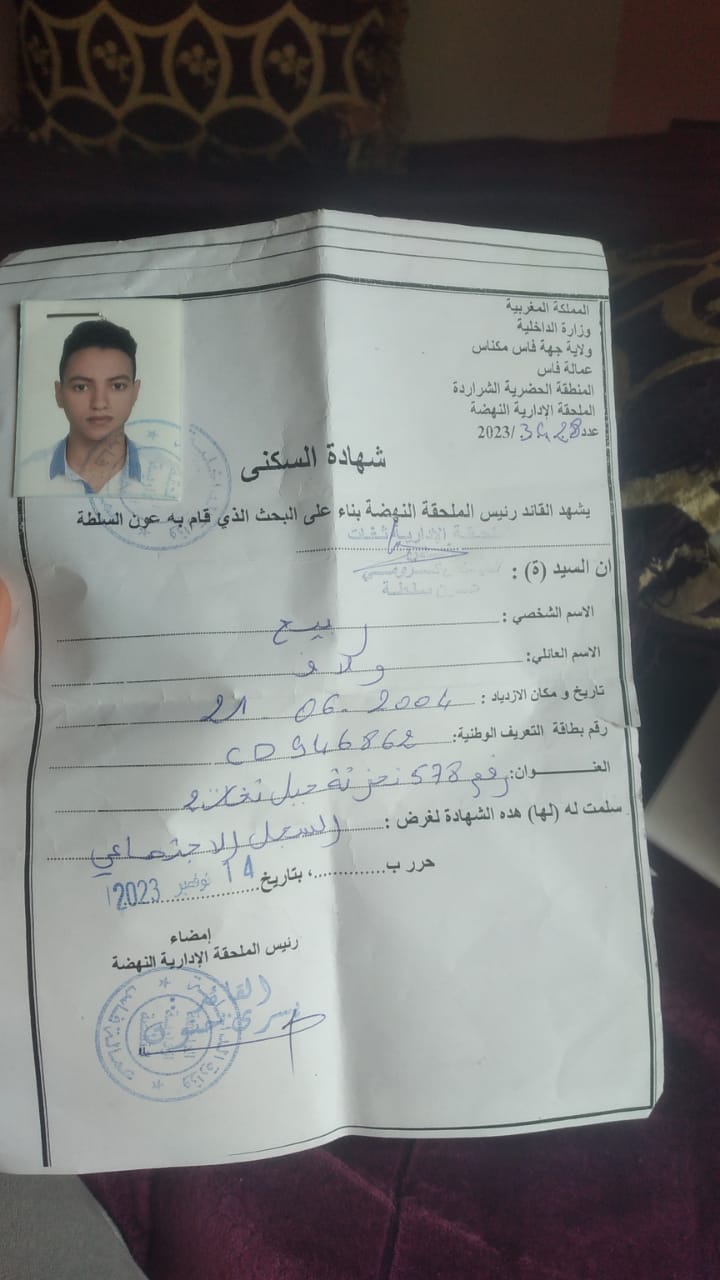 المملكة المغربية
وزارة الداخلية
ولاية جهة فاس مكناس
عمالة فاس
المنطقة الحضرية الشراردة
الملحقة الإدارية النهضة
عدد 3428 /2023
شهادة السكنى
يشهد القائد رئيس الملحقة النهضة بناء على البحث الذي قام به عون السلطة
ان السيد (ة) :
الاسم الشخصي : ربيع
الاسم العائلي:
تاريخ و مكان الازدياد : 21 . 06 . 2004
رقم بطاقة التعريف الوطنية: CD946862
العنـــــــوان: رقم 578 تجزئة جبل تغات 2
سلمت له (لها) هده الشهادة لغرض : السجل الاجتماعي
حرر ب............، بتاريخ 14 نوفمبر 2023
إمضاء
رئيس الملحقة الإدارية النهضة